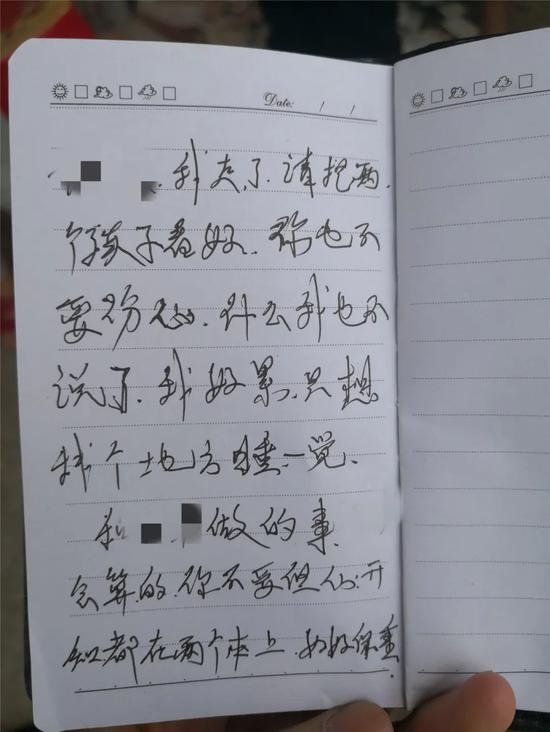 Date: / /
我走了请把两
个孩子看好.你也不
要伤心.什么我也不
说了.我好累.只想
找个地方睡一觉.
和 做的事
会算的.你不要但心.开
都在两个本上.好好保重